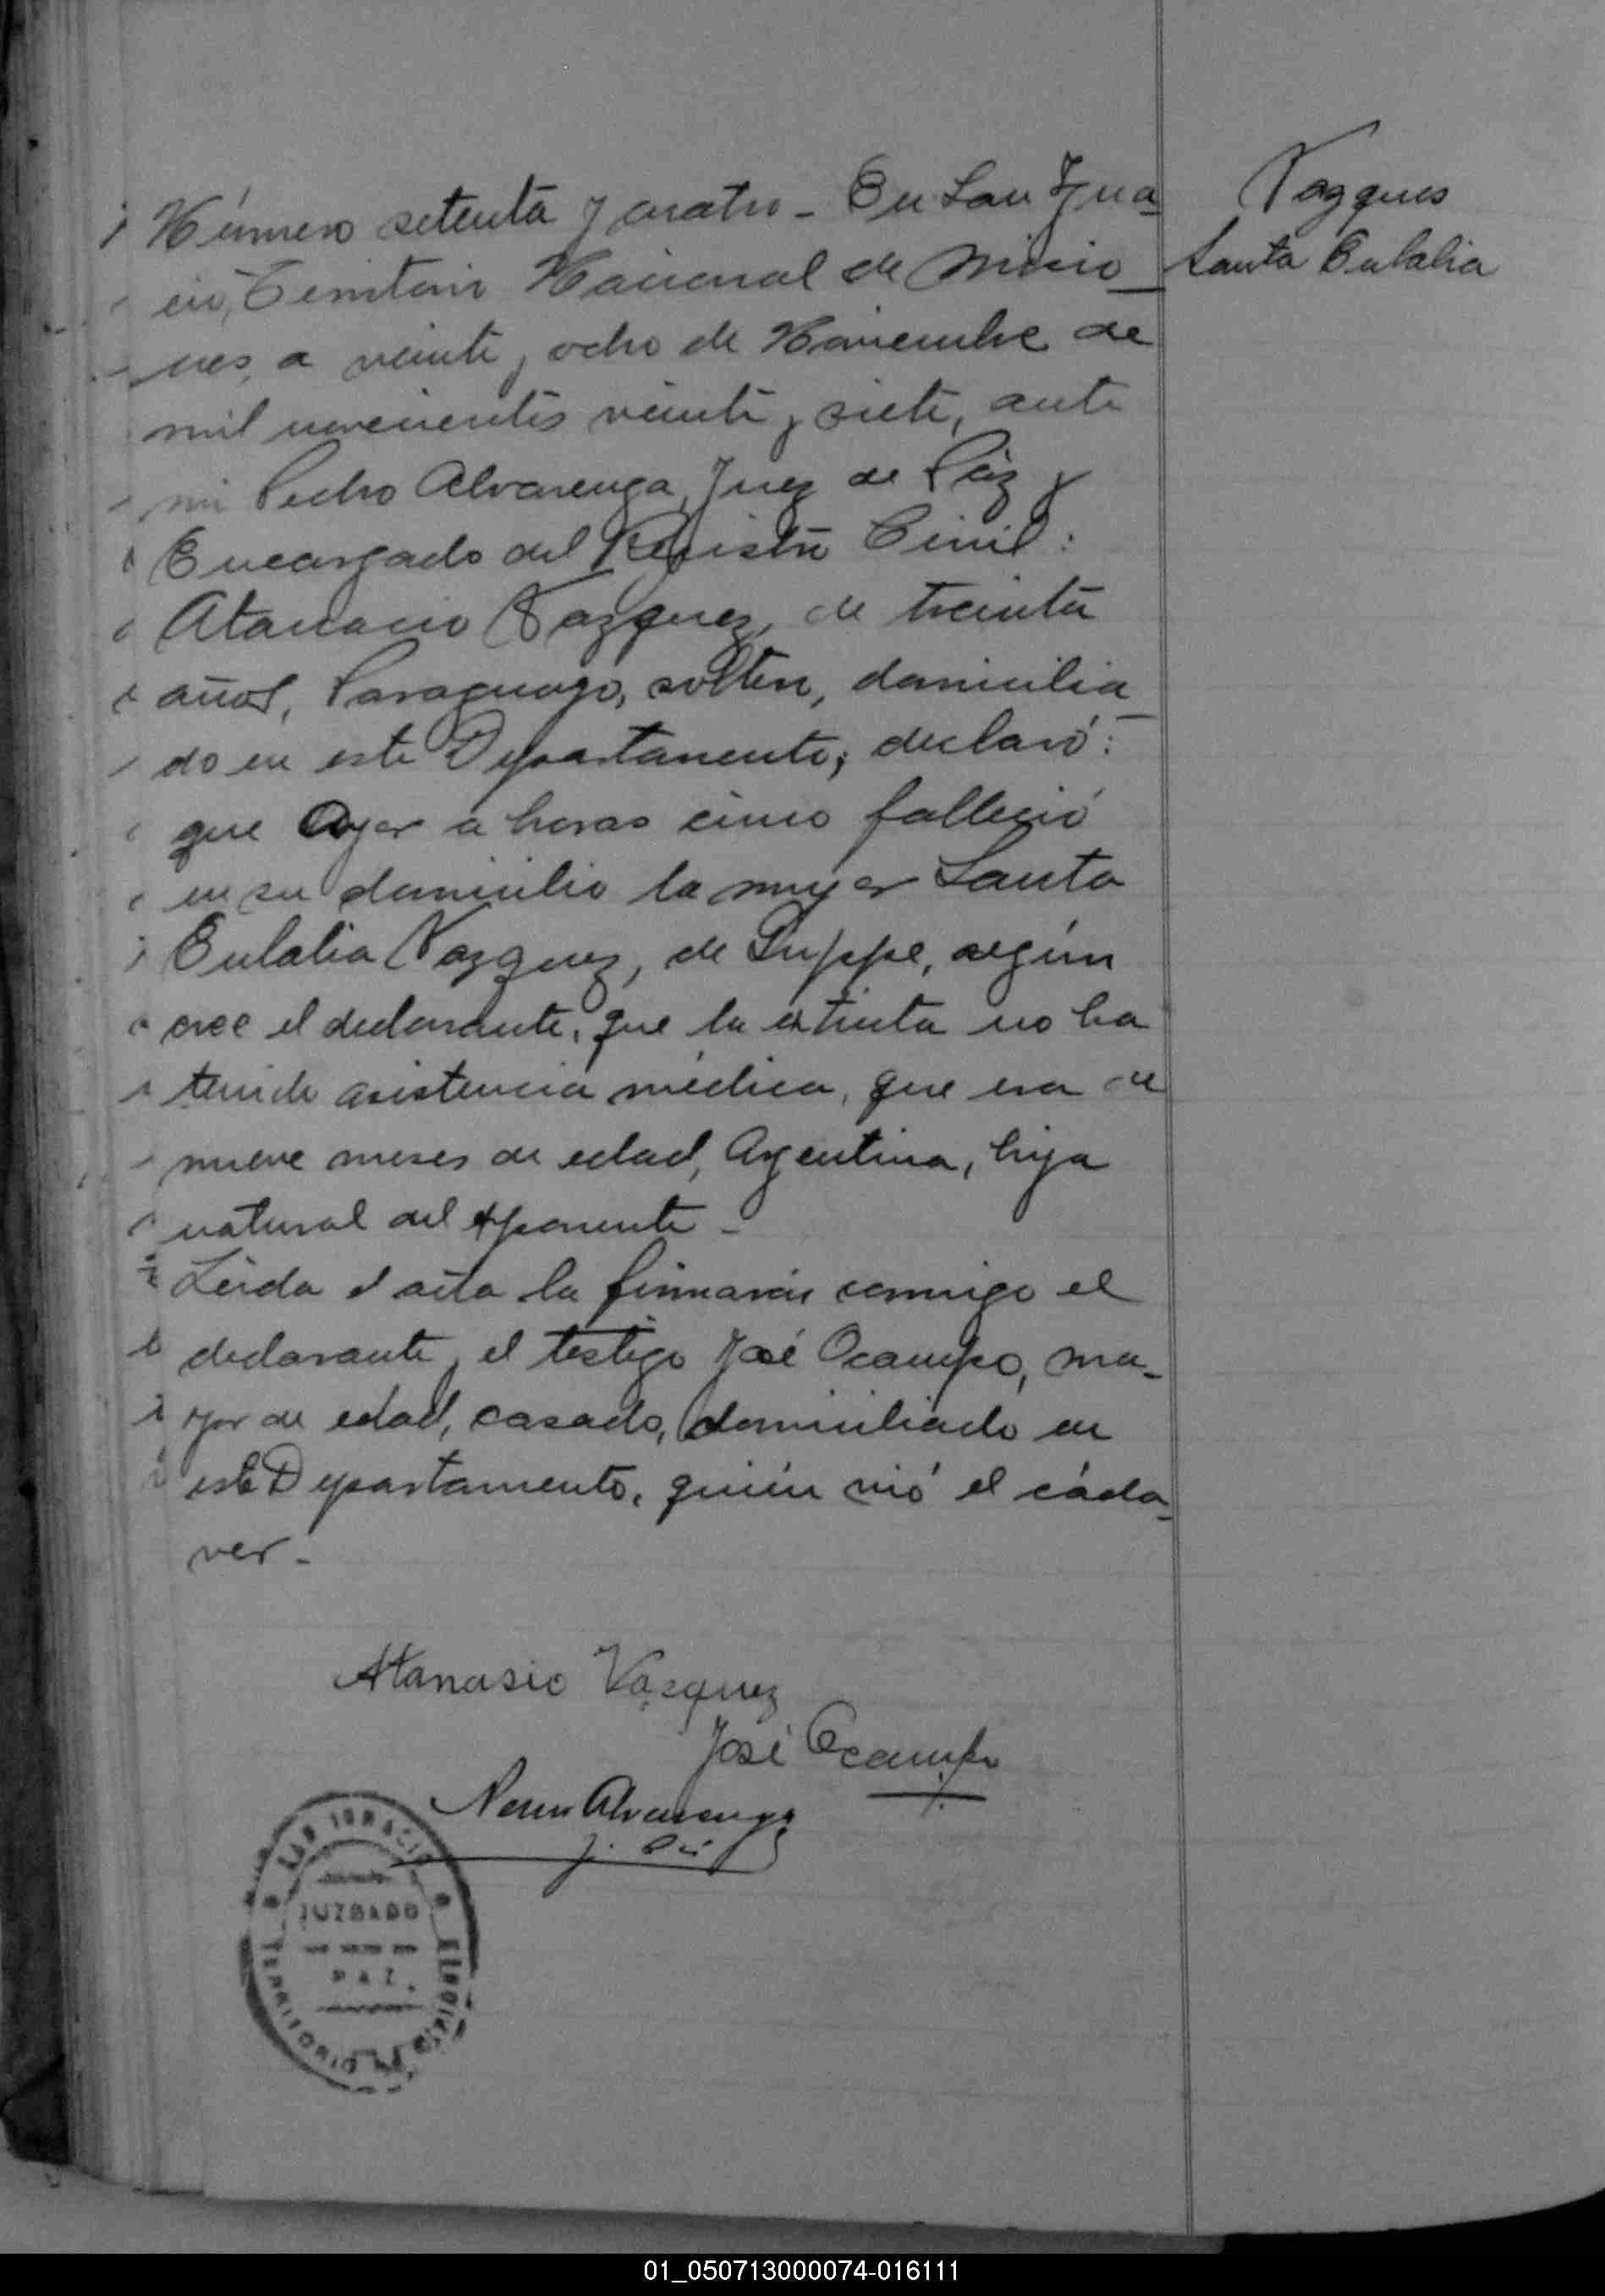 Número setenta y cuatro - En San Igna_
cio, Territorio Nacional de Misio_
nes, a veinte y ocho de Noviembre de
mil novecientos veinte y siete, ante
mi Pedro Alvarenga, Juez de Páz y
Encargado del Registro Civil:
Atanacio Vazquez, de treinta
años, Paraguayo, soltero, domicilia_
do en este Departamento, declaró:
que Ayer a horas cinco falleció
en su domicilio la mujer Santa
Eulalia Vazquez, de según
cree el declarante, que la extinta no ha
tenido asistencia médica, que era de
nueve meses de edad, Argentina, hija
natural del exponente -
Leida el acta la firmarón conmigo el
declarante y el testigo José Ocampo, ma-
yor de edad, casado, domiciliado en
este Departamento, quién vió el cáda_
ver -
Vazques
Santa Eulalia
Atanasio Vazquez
José Ocampo
Alvarenga
SAN IGNACIO
JUZGADO
PAZ.
TERRITORIO
01_050713000074-016111